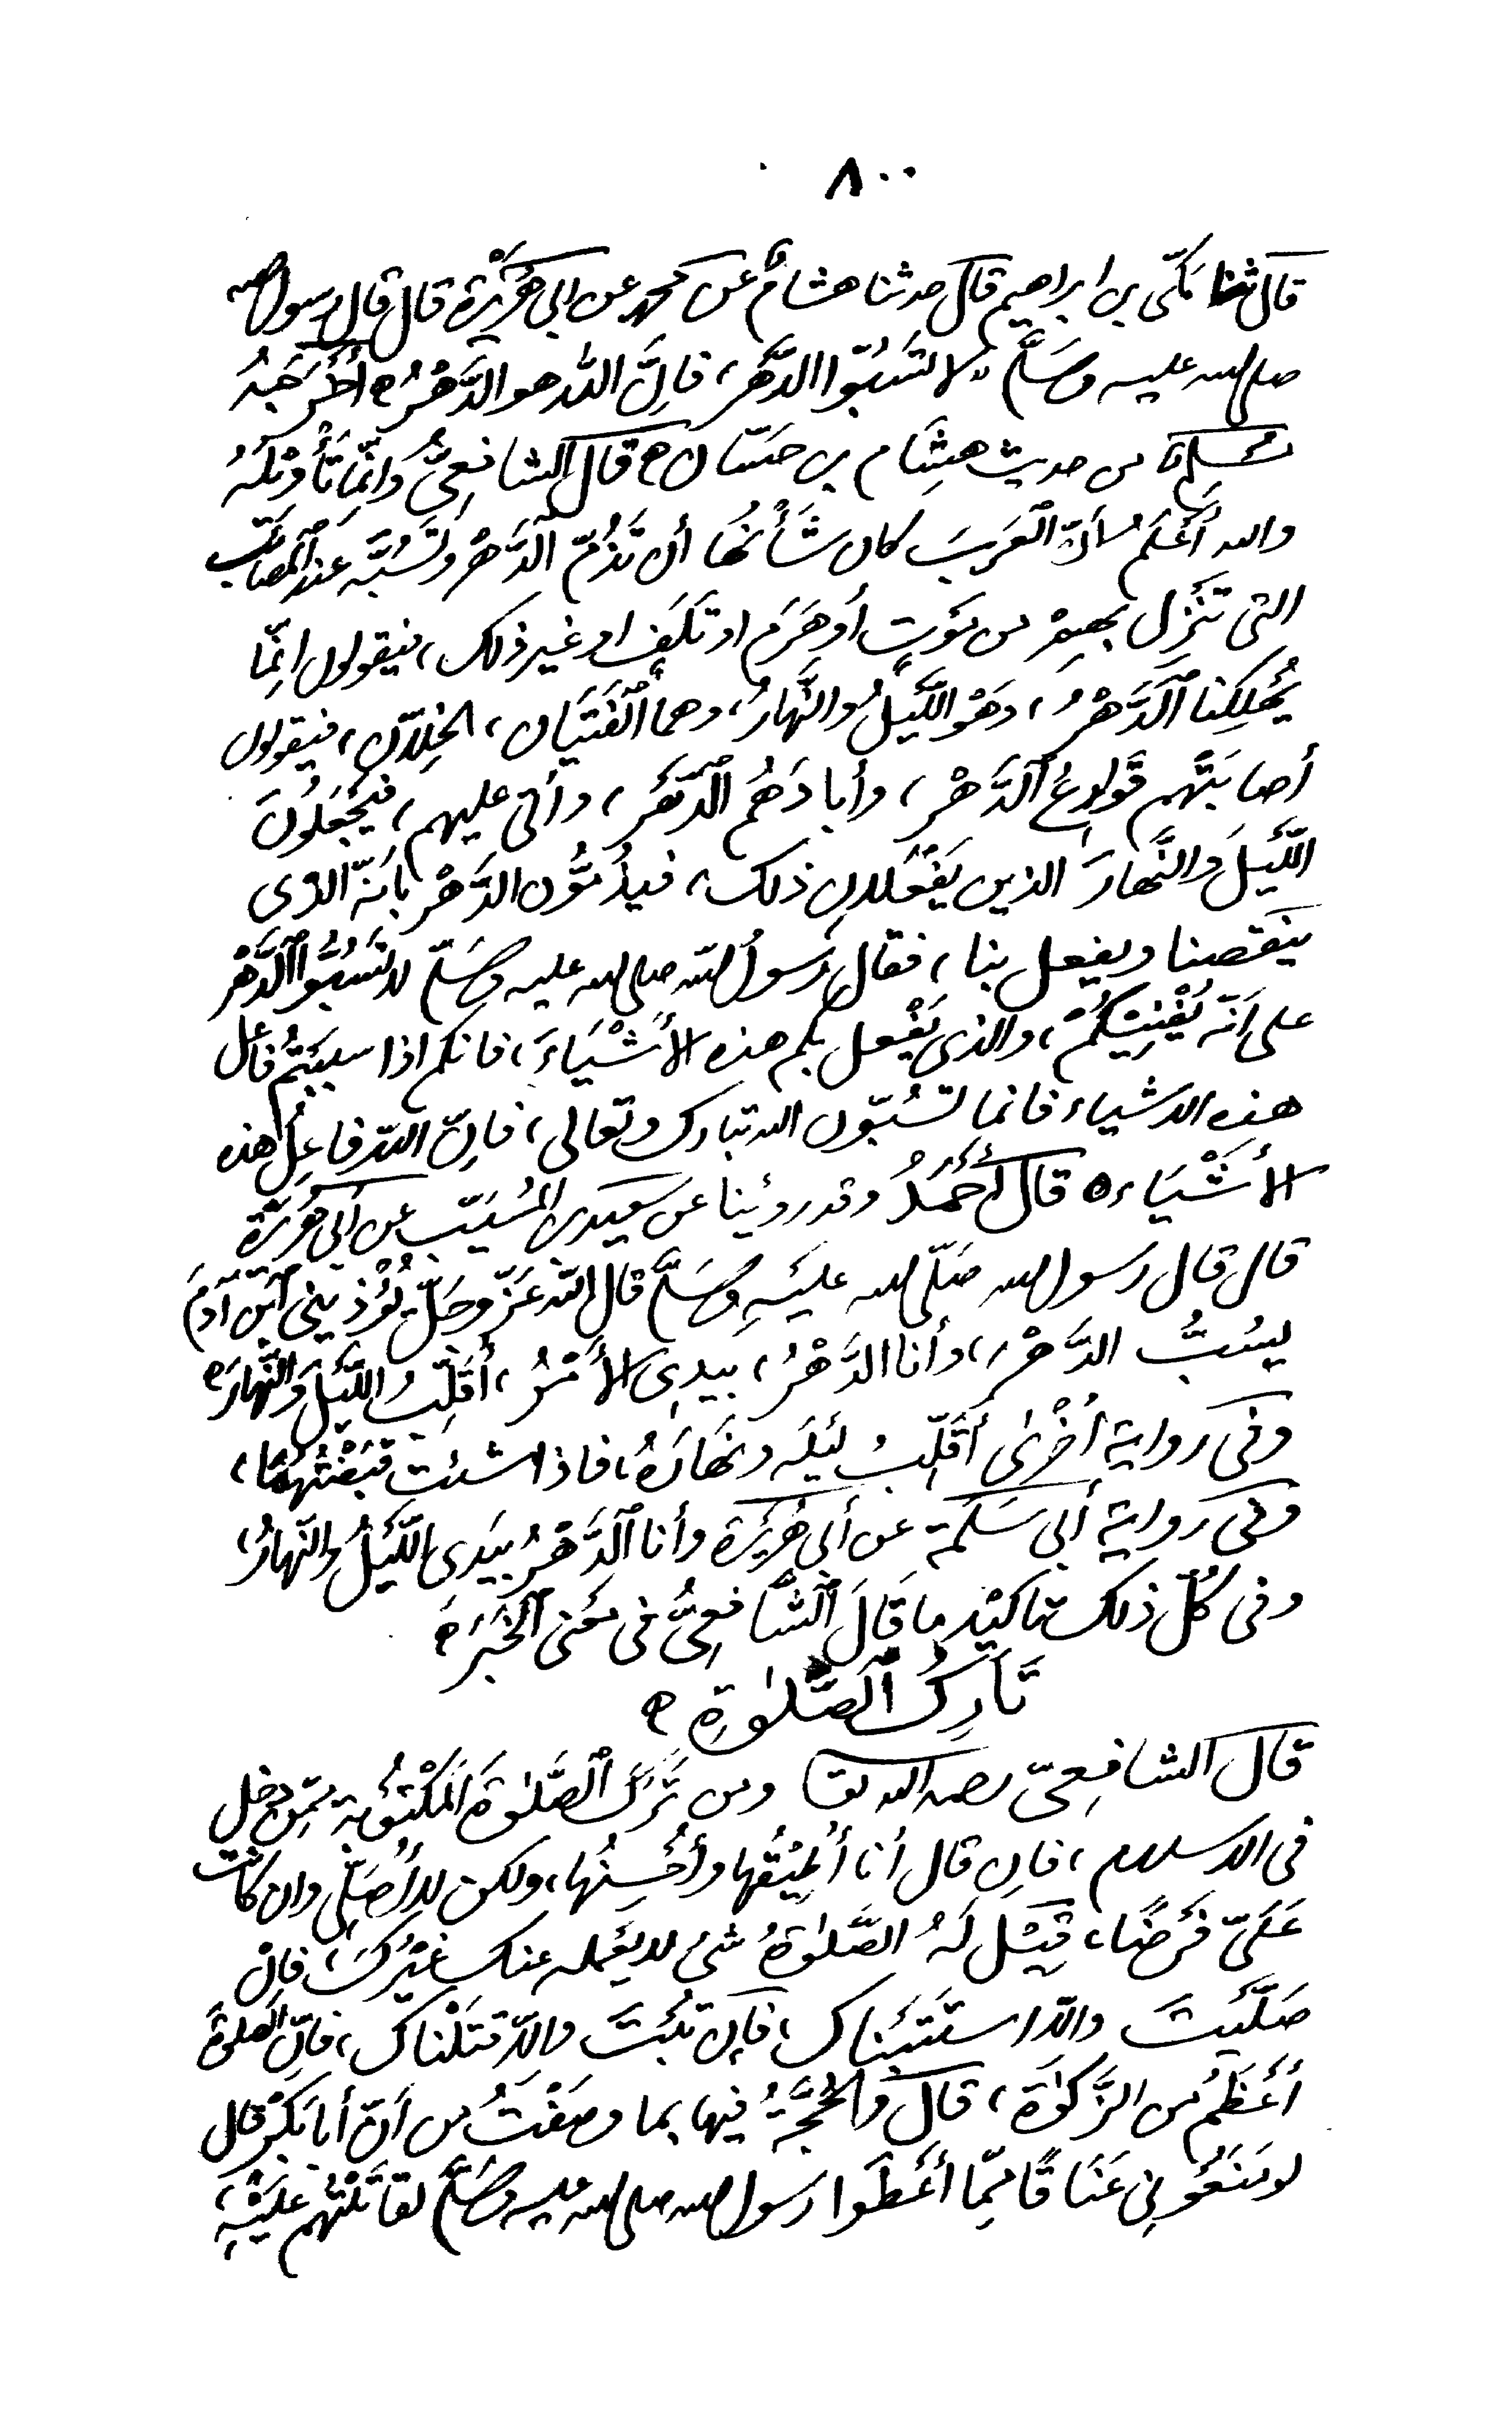 ٨٠٠
قال ثنا مَكّى بن ابراهيم قال حدثنا هشامٌ عن محمد عن ابى هُرَيْرة قال قال رسول الله
صلى الله عليه وسَلَّم لا تَسُبّوا الدَّهر، فاِنَّ الله هو الدَّهْرُ ه أخْرَجَهُ
مُسلِمٌ من حديث هِشَام بن حسّان ه قال الشافِعِىُّ وَانّما تَأْوِيْلُهُ
والله أعْلَمُ أنّ العَرَبَ كان شَأْنُهَا أن تَذُمّ الدَّهْرَ وتَسُبَّه عند المصَائب
التى تَنْزِل بهِمْ من مَوتٍ أو هَرَمٍ او تَلَفٍ او غير ذلك، فيقولون اِنّمَا
يُهْلِكنا الدَّهْرُ، وَهُو اللَّيلُ والنَّهارُ، وهما الْفَتَيَان، الجَدِيْدان، فيقولون
أصابَتْهم قَوارِعُ الدَّهْرِ، وأبادَهُمُ الدَّهْرُ، وأتى عليهم، فيَجْعَلُونَ
اللّيْلَ والنَّهارَ الذين يَفْعَلانِ ذلك، فيذُمُّون الدَّهْرَ بانّه الذى
ينقصنا ويفعل بنا، فقال رَسولُ اللّه صلى الله عليه وسَلّم لا تَسُبُّوا الدَّهْرَ
على أنّه يُفْنِيْكُمْ، والذى يَفْعل بكم هذه الأشْيَاءَ، فانكم اذا سبَبْتُم فاعل
هذِه الاشياء فانما تَسُبّون الله تبارك وتعالى، فاِنّ اللّه فاعِلُ هذه
الأشْيَاء ه قال أَحْمَدُ وقد روُينا عن سَعِيد بن المُسَيّب عن أبى هُرَيْرَة
قال قال رَسول الله صَلّى الله عليْهِ وسَلَّم قال اللّه عَزّ وجَلّ يُؤْذِينى ابْن آدَمَ
يسُبُّ الدَّهْرَ، وأنا الدَّهْرُ، بيدِى الأمْرُ، أُقَلِّبُ اللَّيْلَ وَالنَّهارَ ه
وفى رواية أُخْرَىٰ أُقَلِّبُ لَيْلَه ونَهَارَهُ، فاذا شئت قَبَضْتُهُمَا،
وفى رواية أبى سَلَمَة عن أبى هُرَيْرَة وأنا الدَّهْرُ بيَدِى اللَّيْلُ والنّهارُ،
وفى كُلّ ذلك تاكيْد ما قَالَ الشَّافِعِىُّ فى مَعْنى الخَبَرَ ه
تَارِكُ الصَّلٰوةِ ه
قال الشافِعىّ رحمه الله تعا ومن تَرَكَ الصَّلٰوةَ المَكْتُوبة مِمّن دخل
فى الاسلام، فاِن قال أنا أُطِيْقُها وأُحْسِنُها، ولكن لا أُصَلّى وان كانت
عَلَىّ فَرضًا، قِيْلَ لَهُ الصَّلٰوةُ شىءٌ لا يَعْمله عنك غيْرُكَ، فاِنْ
صَلَّيْتَ والاّ اسْتَتَبْناك، فاِن تُبْتَ والاّ قتَلْناك، فاِنّ الصلوةَ
أعْظَمُ من الزَّكٰوة، قال والحُجَّةُ فيها بما وصَفْتُ من أنّ أبا بكْرٍ قال
لو مَنَعُونى عَنَاقًا مِمّا أعْطَوا رَسول الله صلى الله عليه وسَلَّم لقاتَلْتُهم عليْهِ،